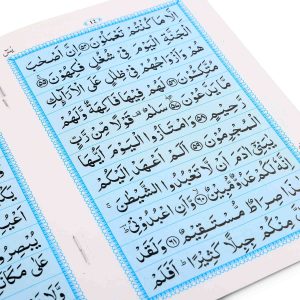 يٰسٓ
١٤
اِلَّا مَا كُنْتُمْ تَعْمَلُوْنَ ﴿۵۴﴾ اِنَّ اَصْحٰبَ
الْجَنَّةِ الْيَوْمَ فِيْ شُغُلٍ فٰكِهُوْنَ ﴿۵۵﴾
هُمْ وَاَزْوَاجُهُمْ فِيْ ظِلٰلٍ عَلَى الْاَرَآئِكِ
مُتَّكِـُٔوْنَ ﴿۵۶﴾ لَهُمْ فِيْهَا فَاكِهَةٌ وَّلَهُمْ
مَّا يَدَّعُوْنَ ﴿۵۷﴾ سَلٰمٌ قَوْلًا مِّنْ رَّبٍّ
رَّحِيْمٍ ﴿۵۸﴾ وَامْتَازُوا الْيَوْمَ اَيُّهَا
الْمُجْرِمُوْنَ ﴿۵۹﴾ اَلَمْ اَعْهَدْ اِلَيْكُمْ
يٰبَنِيْٓ اٰدَمَ اَنْ لَّا تَعْبُدُوا الشَّيْطٰنَ
اِنَّهٗ لَكُمْ عَدُوٌّ مُّبِيْنٌ ﴿۶۰﴾ وَّاَنِ اعْبُدُوْنِيْ
هٰذَا صِرَاطٌ مُّسْتَقِيْمٌ ﴿۶۱﴾ وَلَقَدْ
مِنْكُمْ جِبِلًّا كَثِيْرًا اَفَلَمْ
يُبْصِرُوْنَ
عَلٰى مَكَا